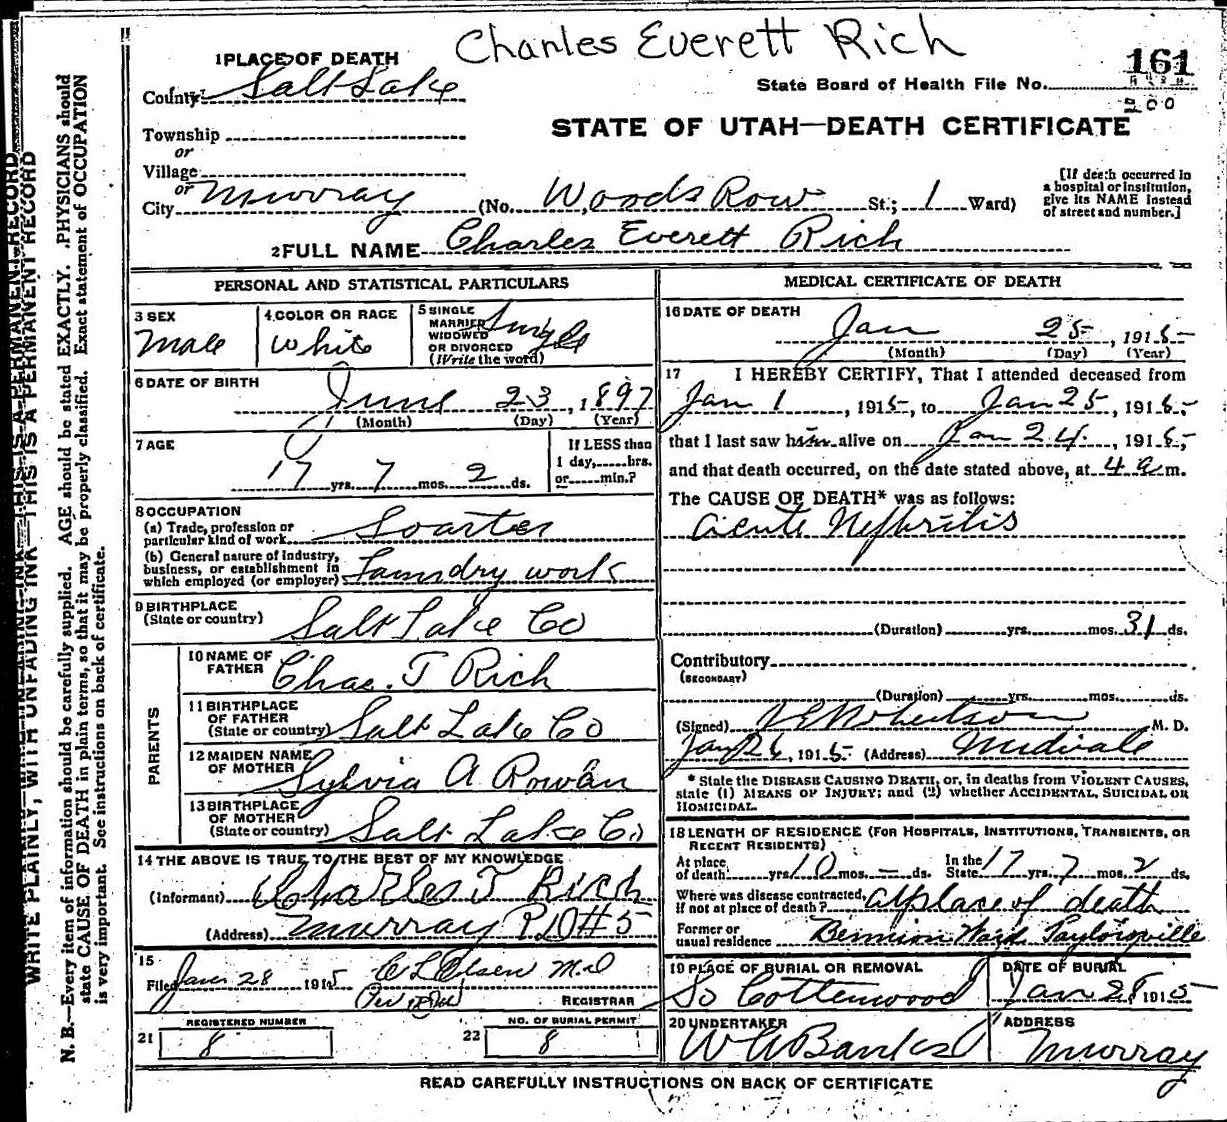 Charles Everett Rich
1 PLACE OF DEATH
161
County Salt Lake
State Board of Health File No.
200
Township
STATE OF UTAH—DEATH CERTIFICATE
or
Village
or
City Murray (No. Woods Row St.; 1 Ward)
[If death occurred in
a hospital or institution,
give its NAME instead
of street and number.]
2 FULL NAME Charles Everett Rich
PERSONAL AND STATISTICAL PARTICULARS
3 SEX
Male
4 COLOR OR RACE
White
5 SINGLE
MARRIED
WIDOWED
OR DIVORCED
(Write the word)
Single
6 DATE OF BIRTH
June 23, 1897
(Month) (Day) (Year)
7 AGE
17 yrs. 7 mos. 2 ds.
If LESS than
1 day, hrs.
or min.?
8 OCCUPATION
(a) Trade, profession or
particular kind of work Soarter
(b) General nature of industry,
business, or establishment in
which employed (or employer) Laundry work
9 BIRTHPLACE
(State or country) Salt Lake Co
PARENTS
10 NAME OF
FATHER Chas. T Rich
11 BIRTHPLACE
OF FATHER
(State or country) Salt Lake Co
12 MAIDEN NAME
OF MOTHER Sylvia A Rowan
13 BIRTHPLACE
OF MOTHER
(State or country) Salt Lake Co
14 THE ABOVE IS TRUE TO THE BEST OF MY KNOWLEDGE
(Informant) Charles T Rich
(Address) Murray RD#5
15
Filed Jan 28 1915 C L Olsen M.D
REGISTRAR
REGISTERED NUMBER
21 8
NO. OF BURIAL PERMIT
22 8
MEDICAL CERTIFICATE OF DEATH
16 DATE OF DEATH
Jan 25, 1915
(Month) (Day) (Year)
17 I HEREBY CERTIFY, That I attended deceased from
Jan 1, 1915, to Jan 25, 1915,
that I last saw him alive on Jan 24, 1915,
and that death occurred, on the date stated above, at 4 a m.
The CAUSE OF DEATH* was as follows:
Acute Nephritis
(Duration) yrs. mos. 31 ds.
Contributory
(SECONDARY)
(Duration) yrs. mos. ds.
(Signed) Robertson M. D.
Jan 26, 1915 (Address) Midvale
* State the DISEASE CAUSING DEATH, or, in deaths from VIOLENT CAUSES,
state (1) MEANS OF INJURY; and (2) whether ACCIDENTAL, SUICIDAL OR
HOMICIDAL.
18 LENGTH OF RESIDENCE (FOR HOSPITALS, INSTITUTIONS, TRANSIENTS, OR
RECENT RESIDENTS)
At place
of death yrs 10 mos. — ds. In the
State 17 yrs. 7 mos. 2 ds.
Where was disease contracted,
if not at place of death? At place of death
Former or
usual residence Bennion Ward Taylorsville
19 PLACE OF BURIAL OR REMOVAL
So Cottonwood
DATE OF BURIAL
Jan 28 1915
20 UNDERTAKER
W A Banks
ADDRESS
Murray
READ CAREFULLY INSTRUCTIONS ON BACK OF CERTIFICATE
WRITE PLAINLY, WITH UNFADING INK—THIS IS A PERMANENT RECORD
N. B.—Every item of information should be carefully supplied. AGE should be stated EXACTLY. PHYSICIANS should
state CAUSE OF DEATH in plain terms, so that it may be properly classified. Exact statement of OCCUPATION
is very important. See instructions on back of certificate.